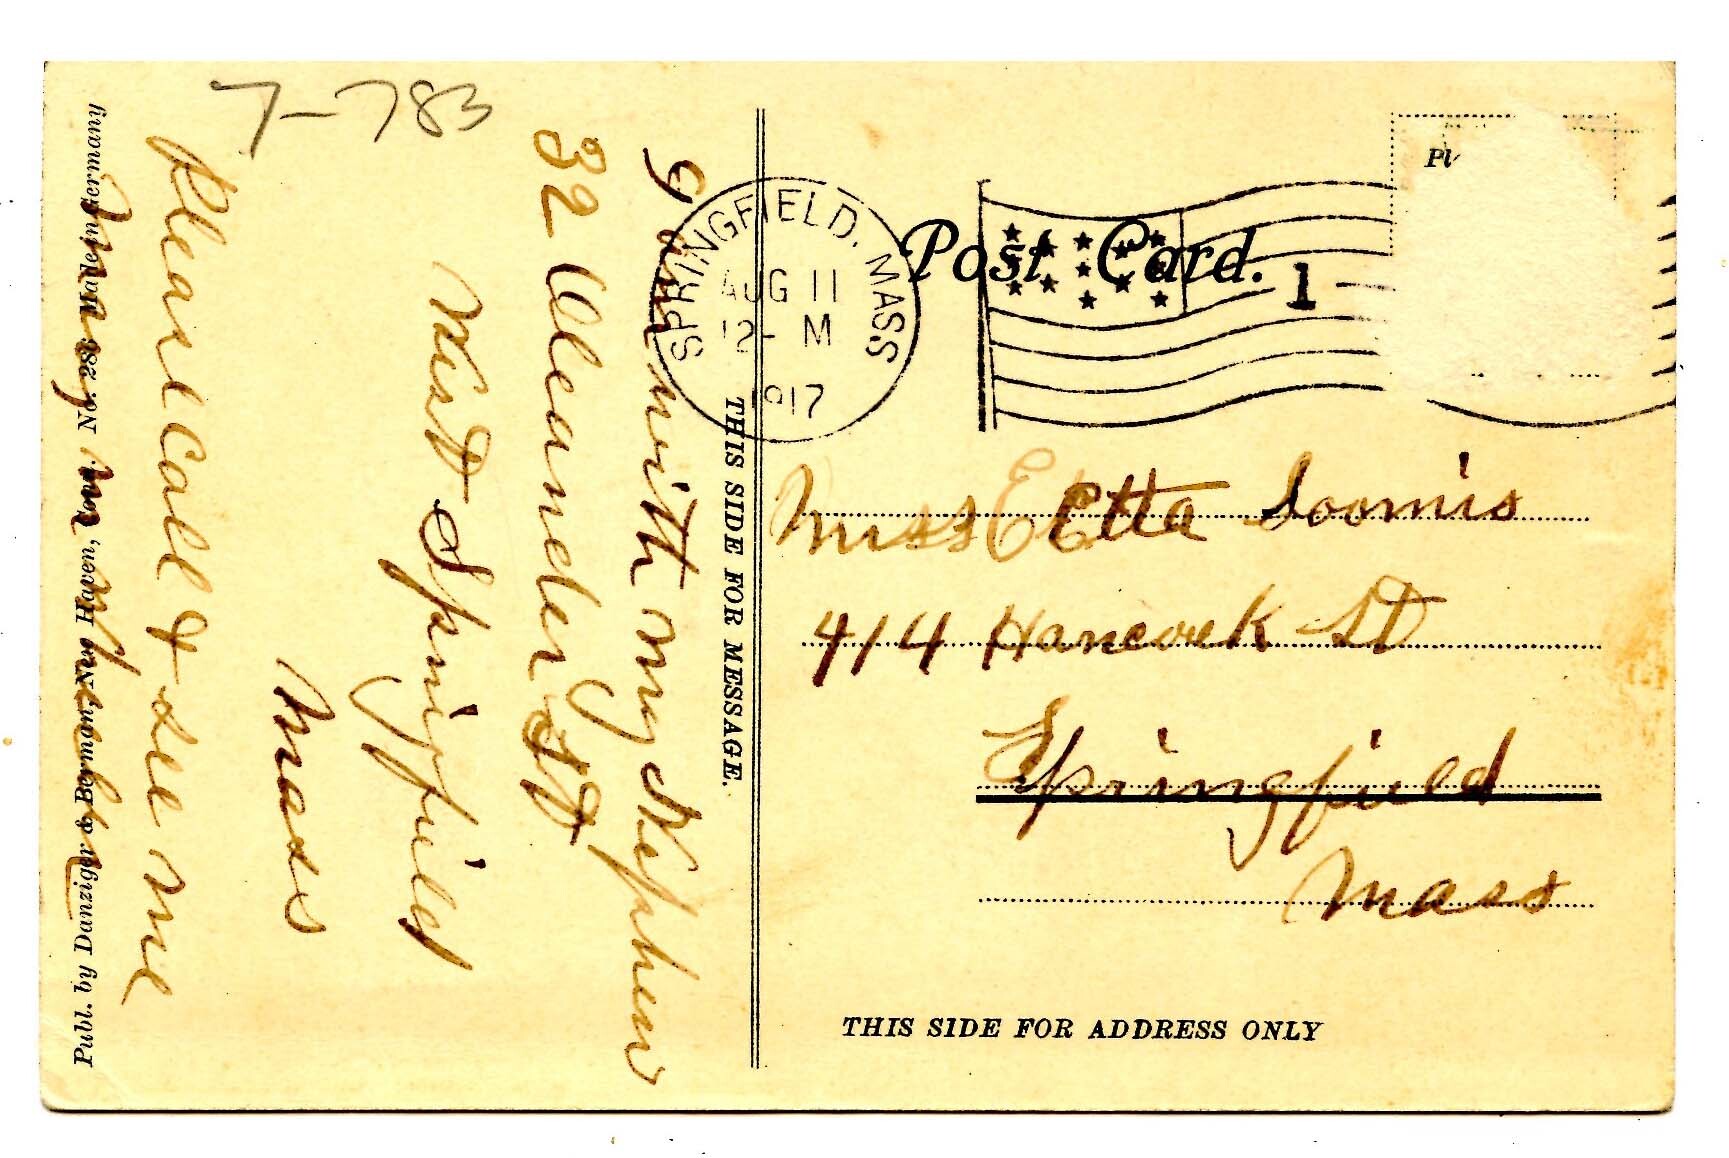 7-783
I am with my Nephew
32 Oleander St
West Springfield
Mass
Please Call & see me
Publ. by Danziger & Berman, New Haven, Conn. No. 283 Made in Germany
THIS SIDE FOR MESSAGE.
SPRINGFIELD, MASS
AUG 11
12- M
1917
Post Card.
1
Miss Etta Loomis
414 Hancock St
Springfield
Mass
THIS SIDE FOR ADDRESS ONLY